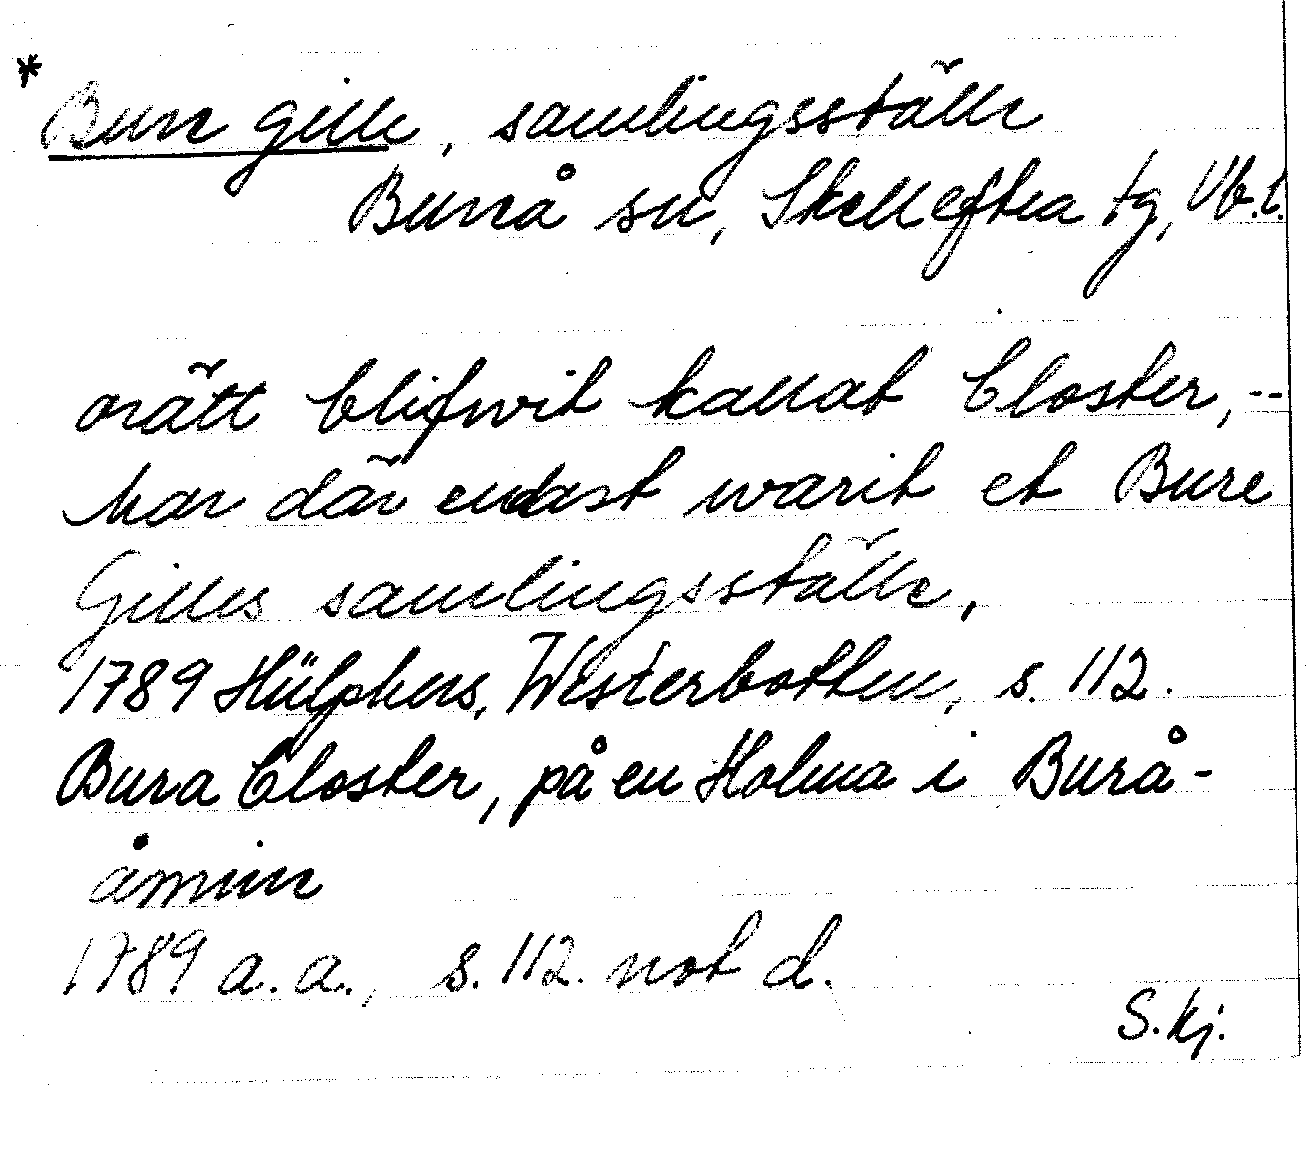 * Bure gille, samlingsställe
Bureå sn, Skellefteå tg, Vb. l.
orätt blifwit kallat Closter, --
har där endast warit et Bure
Gilles samlingsställe,
1789 Hülphers, Westerbotten, s. 112.
Bura Closter, på en Holma i Burå-
åminne
1789 a. a., s. 112. not d.
S. Kj.